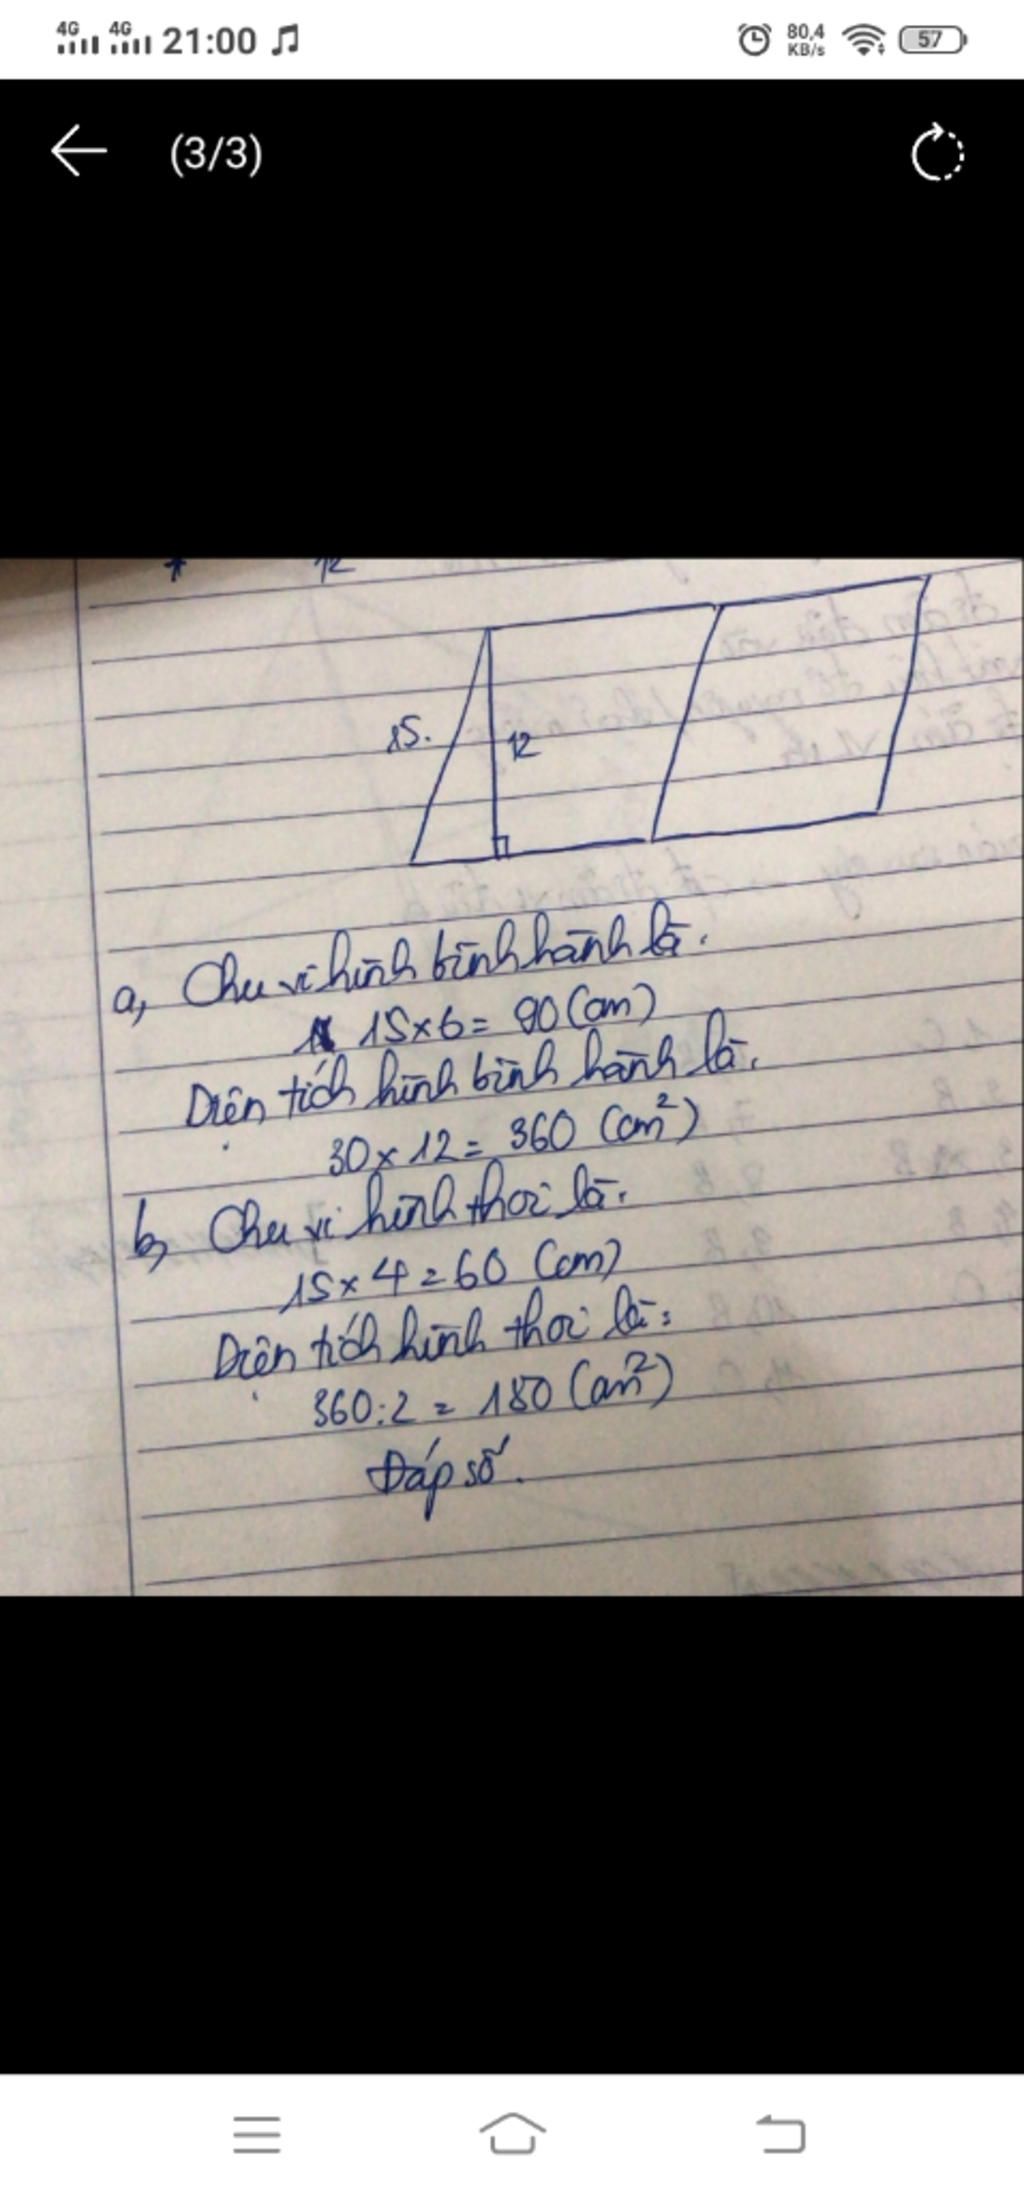 4G 4G 21:00 80,4 KB/s 57
(3/3)
12
15.
12
a, Chu vi hình bình hành là.
15 x 6 = 90 (cm)
Diện tích hình bình hành là.
30 x 12 = 360 (cm²)
b, Chu vi hình thoi là.
15 x 4 = 60 (cm)
Diện tích hình thoi là:
360 : 2 = 180 (cm²)
Đáp số.